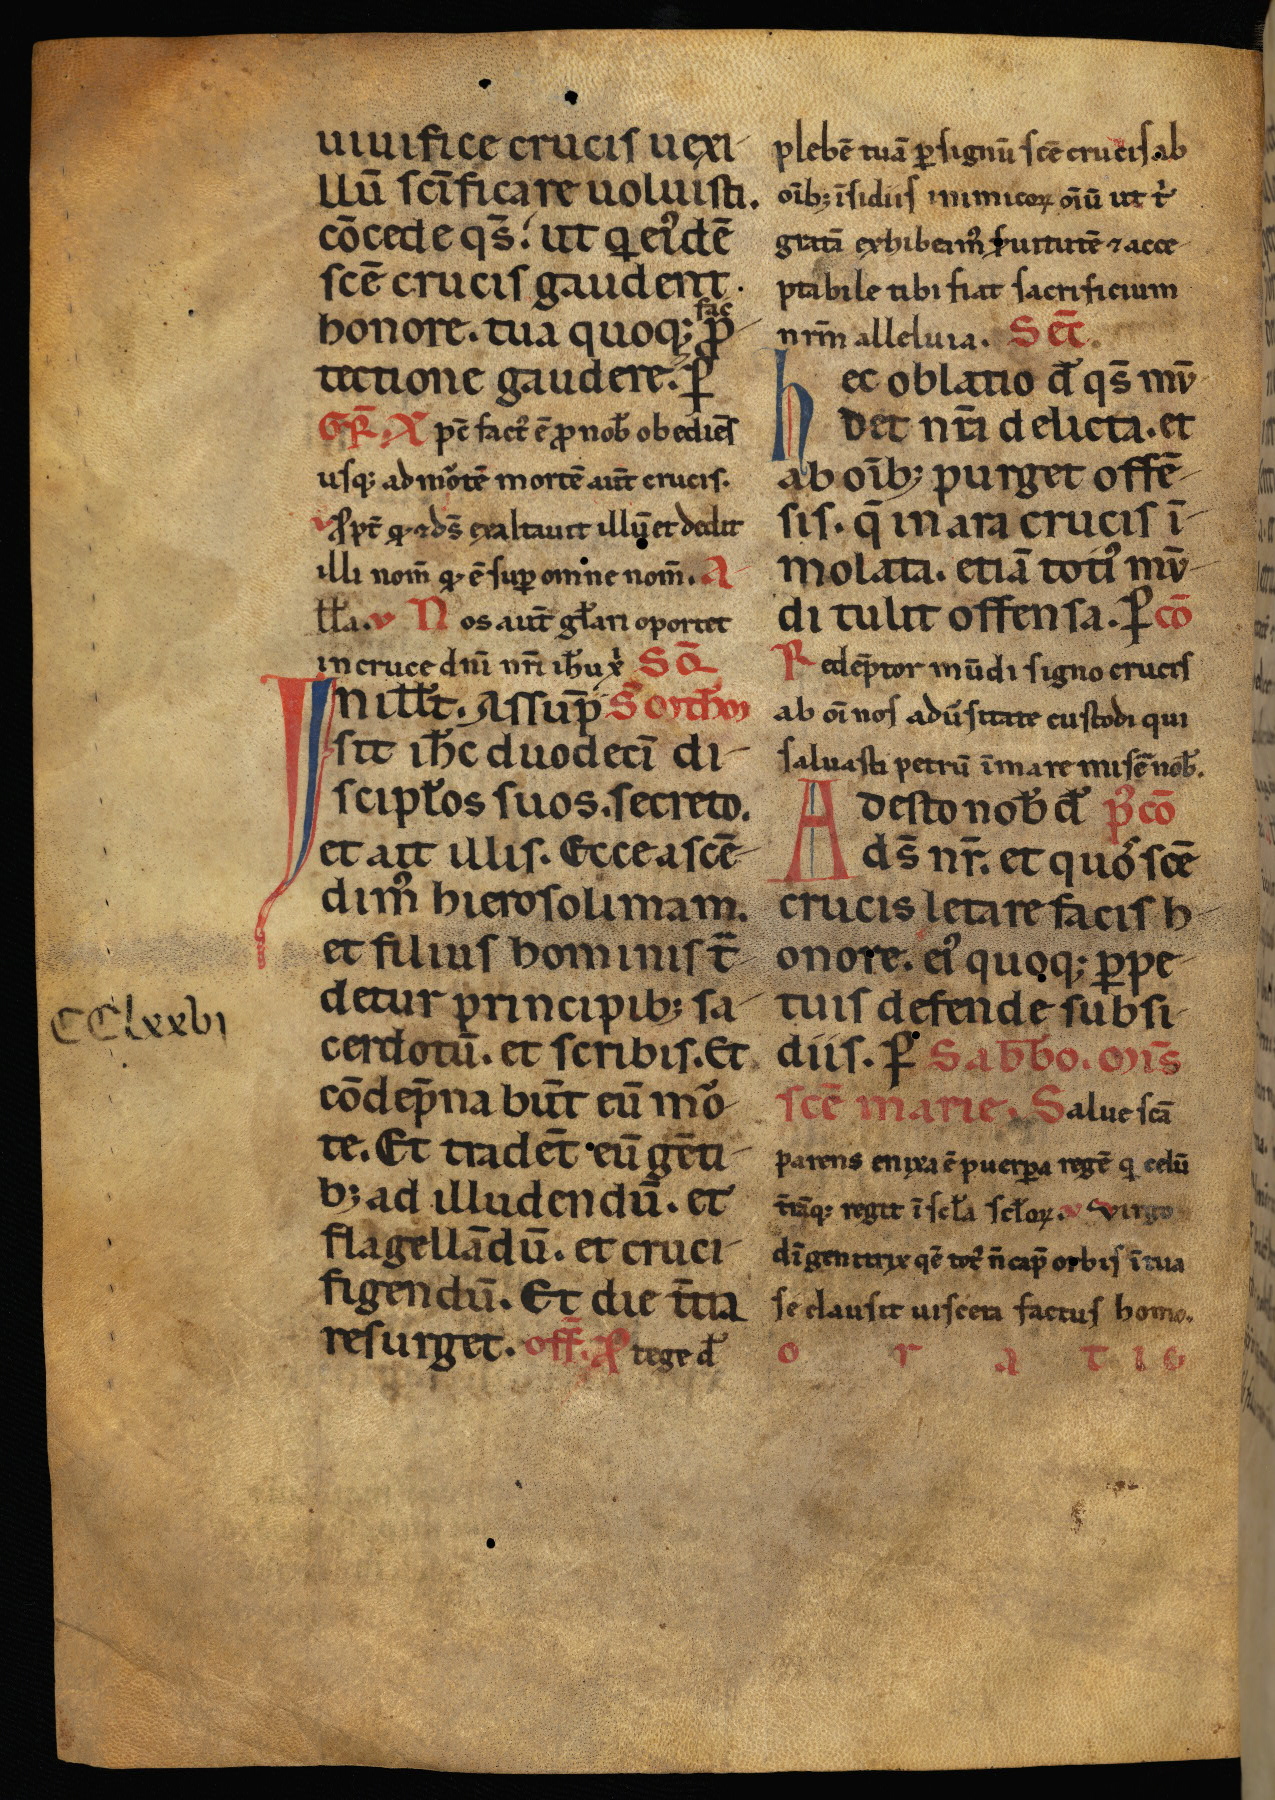 uiuifice crucis uexi-
llū scīficare uoluisti.
cōcede qs̄. ut q ei᷒dē
scē crucis gaudent.
honore. tua quoq; fac ꝓ-
tectione gaudere. P̄
GR̄. X pc̄ fact᷒ ē ꝓ nob̄ obediēs
usq; ad mo᷒tē mortē aut̄ crucis.
v Ꝓpt̄ qꝫ ⁊ ds̄ exaltauit illū et dedit
illi nom̄ qꝫ ē suꝑ omne nom̄. A
ll̄a. v N os aut̄ gl̄ari oportet
in cruce dn̄i nr̄i ih̄u xp̄i SC̄
I N ill̄t. Assūp̄ S. matheū
sit ih̄c duodecī di-
scipl̄os suos. secreto.
et ait illis. Ecce ascē-
dim᷒ hierosolimam.
et filius hominis t̄-
detur principib; sa-
cerdotū. et scribis. Et
CClxxvi
cōdēp̄nabūt eū mo᷒-
te. Et tradēt eū gēti-
b; ad illudendū. et
flagellādū. et cruci-
figendū. Et die t̄tia
resurget. off̄. P tege d̄
plebē tuā ꝑ signū scē crucis ab
oīb; īsidiis inimicoꝝ oīū ut t᷒
gratā exhibeam᷒ s᷒uitutē ⁊ acce-
ptabile tibi fiat sacrificium
nrm̄ alleluia. Sec̄t.
h ec oblatio d̄ qs̄ mū-
det nr̄a delicta. et
ab oīb; purget offē-
sis. q̄ in ara crucis ī-
molata. etiā toti᷒ mū-
di tulit offensa. P̄ cō
R edēptor mūdi signo crucis
ab oī nos adūsitate custodi qui
saluasti petrū ī mare misē nob̄.
A desto nob̄ d̄ P᷒ cō
ds̄ nr̄. et quos scē
crucis letare facis h-
onore. ei᷒ quoq; ꝑpe-
tuis defende subsi-
diis. P̄ Sabb̄o. mis̄
scē marie. Salue scā
parens enixa ē puerpa regē q celū
t̄rāq; regit ī scl̄a scl̄oꝝ. v Virgo
dī genitrix qē tot᷒ n̄ cap̄ orbis ī tua
se clausit uiscera factus homo.
o r a t i o